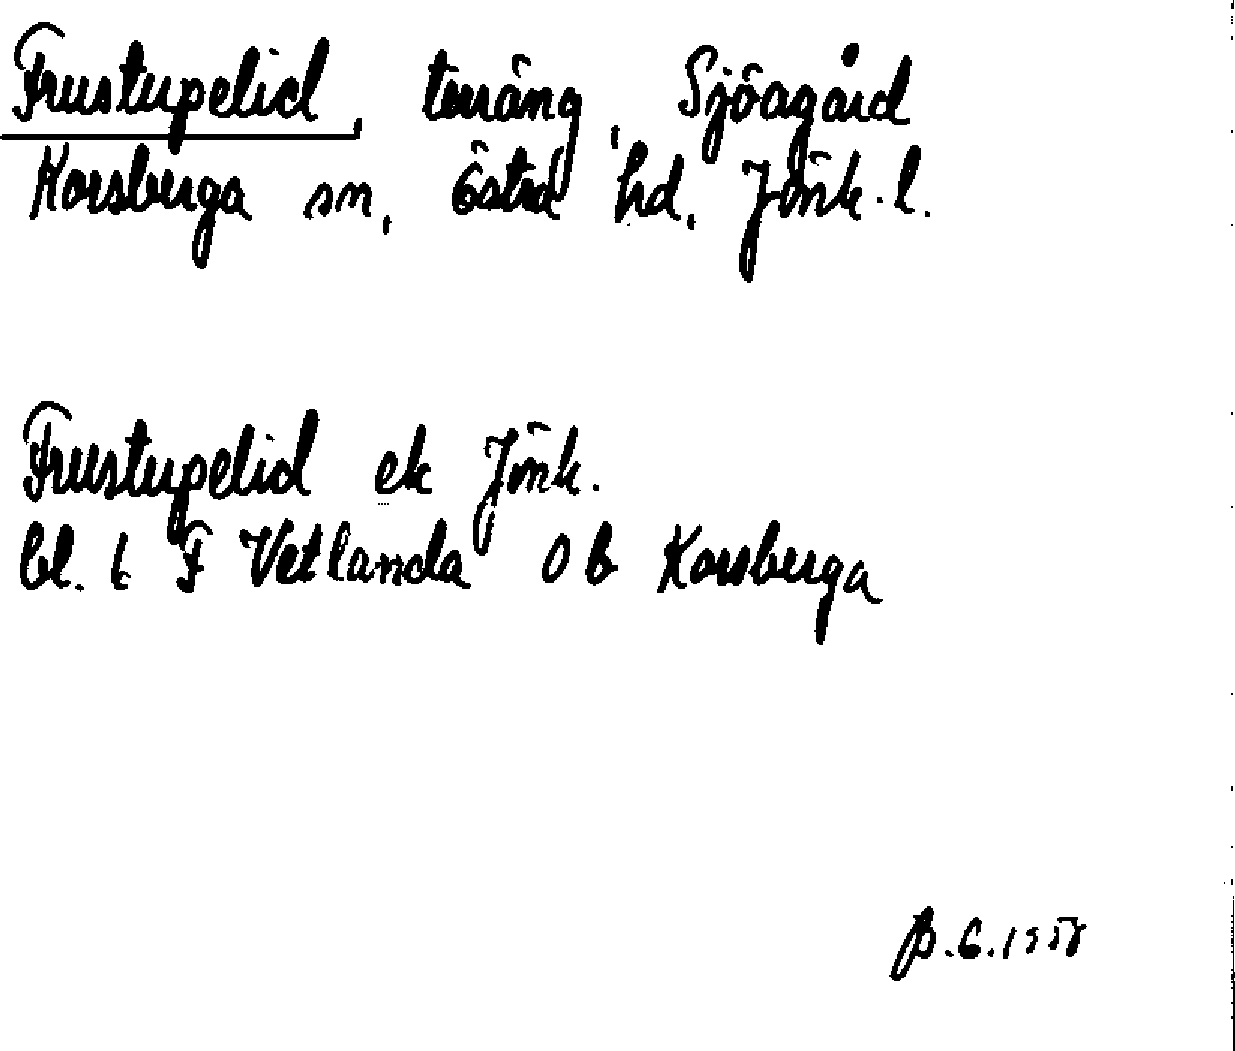 Frustupelid, terräng, Sjöagård
Korsberga sn, Östra hd, Jönk. l.
Frustupelid ek Jönk.
bl. t F Vetlanda O b Korsberga